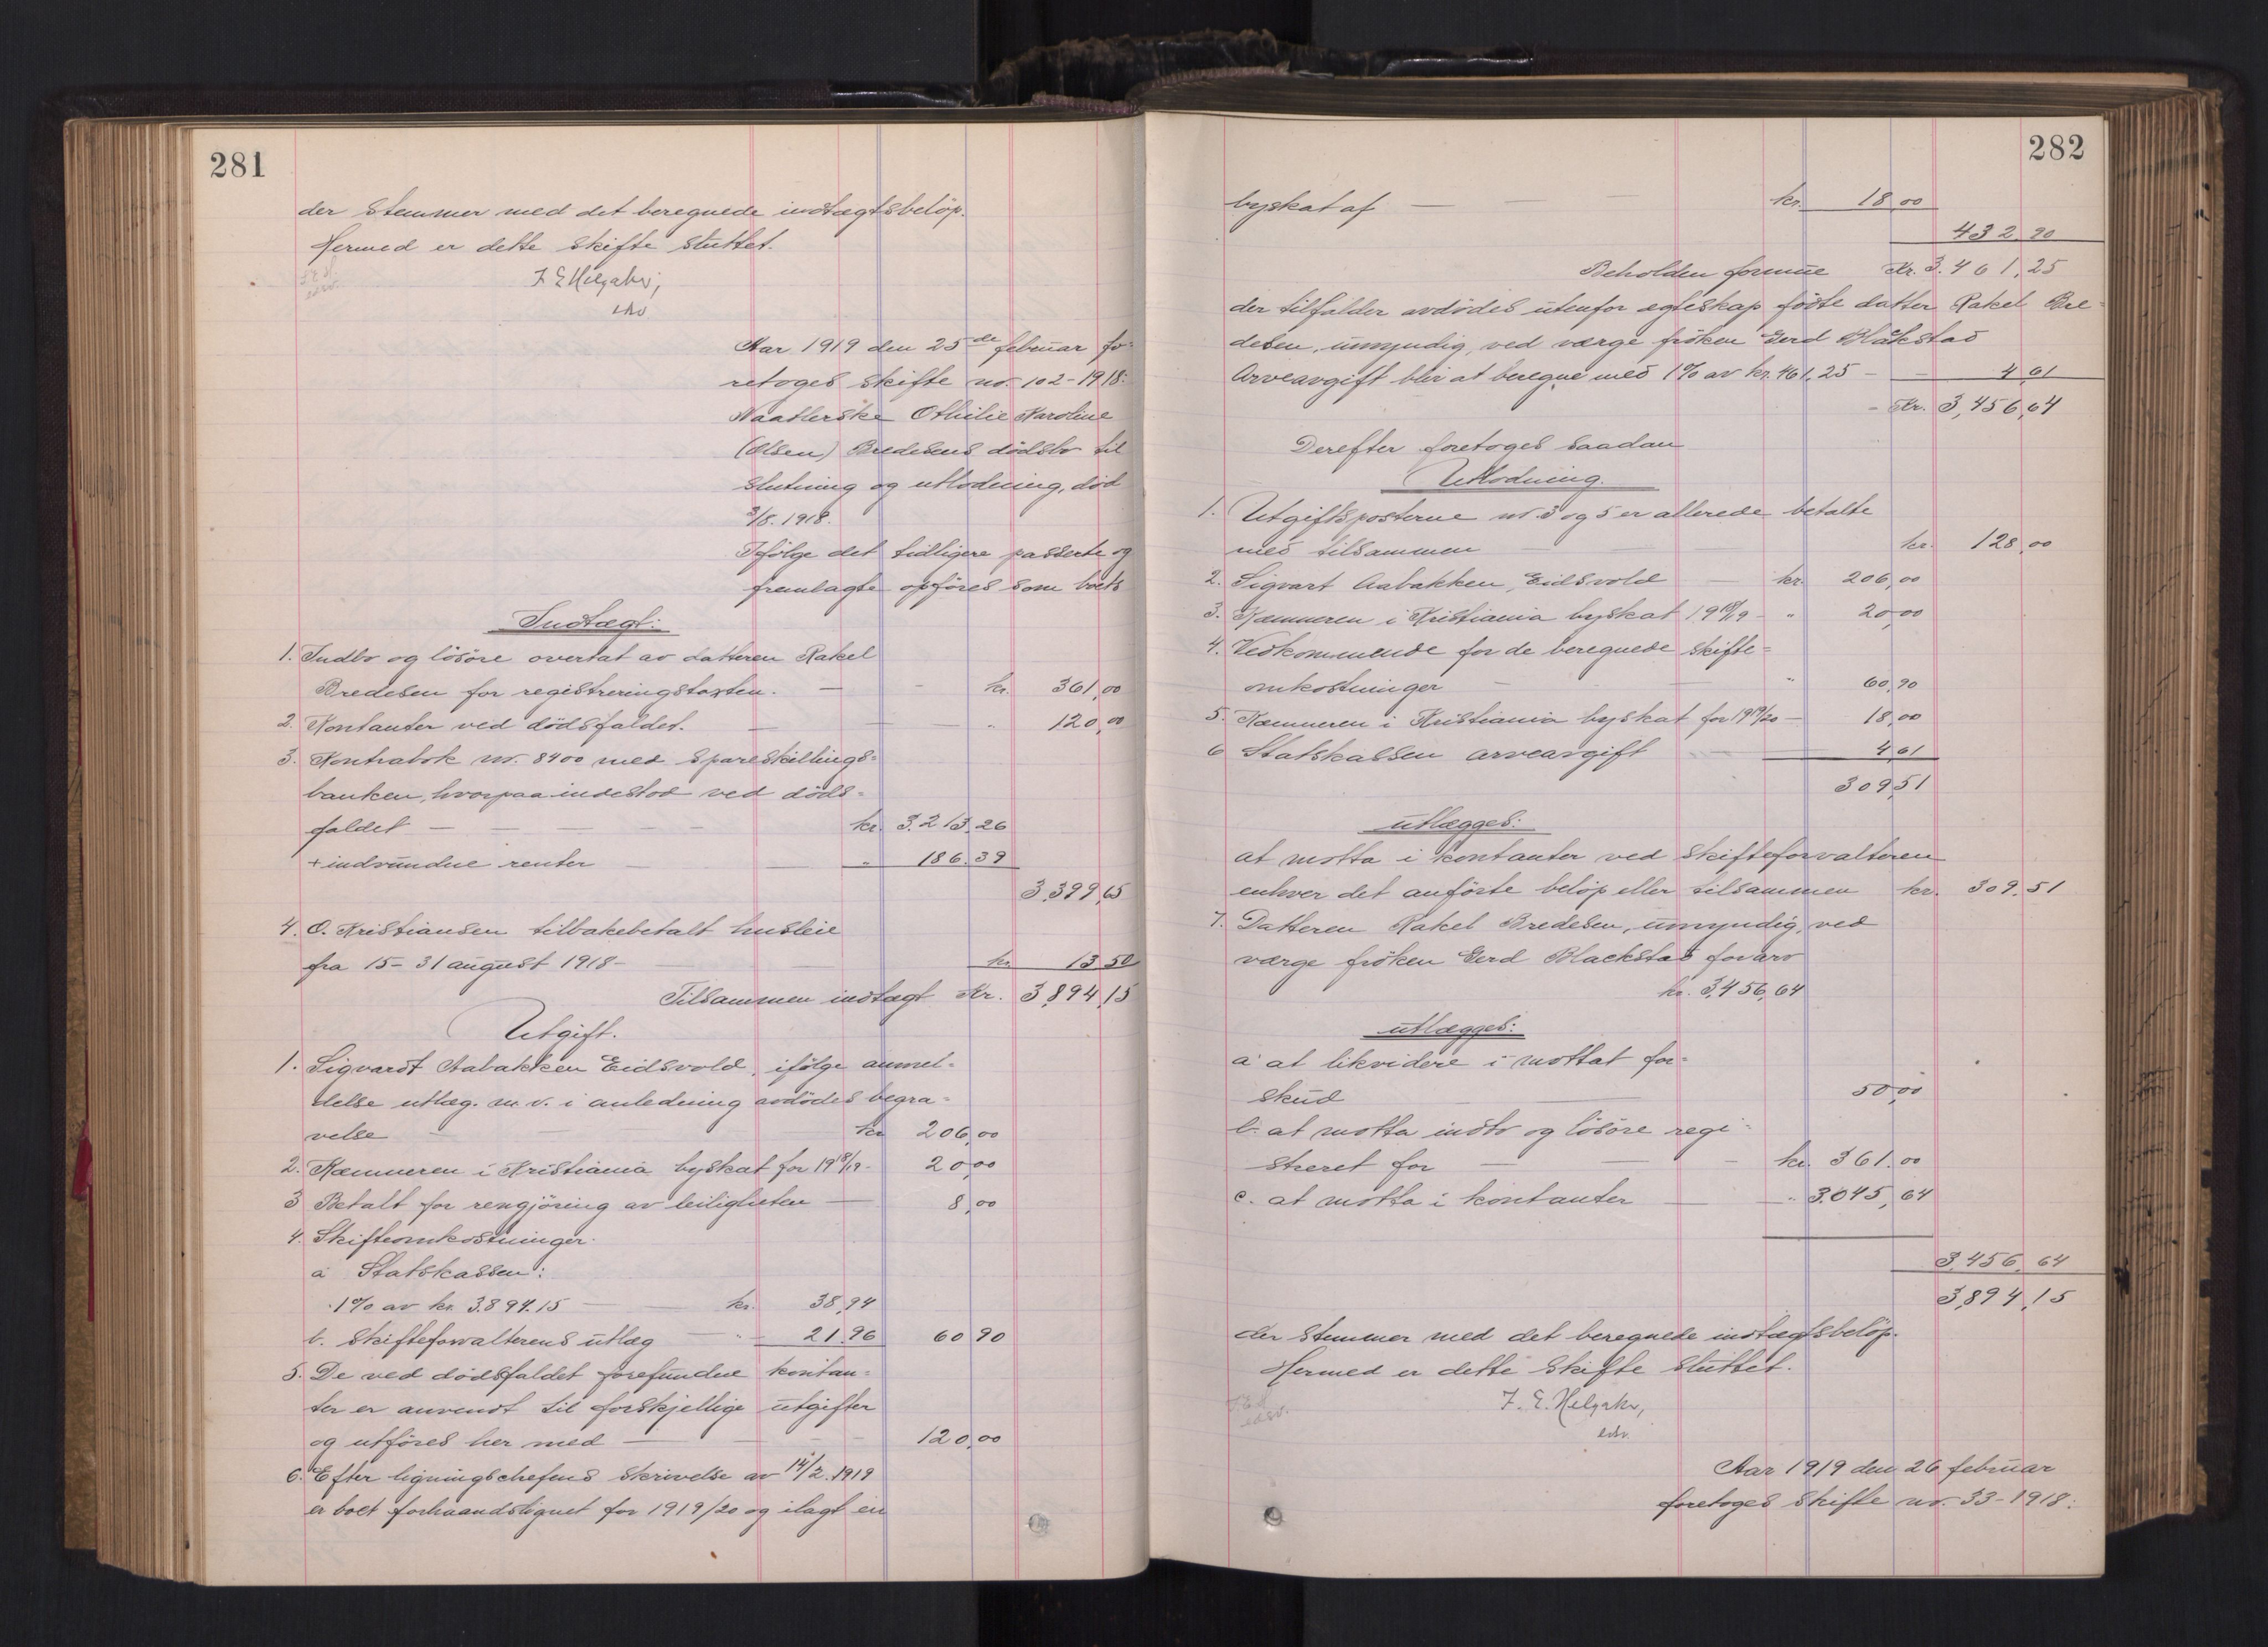 281
der stemmer med det beregnede indtægtsbeløp.
Hermed er dette skifte sluttet.
Aar 1919 den 25de februar fo-
retoges skifte nr. 102-1918:
Othilie Karoline
(Olsen) Bredesens dødsbo til
slutning og utlodning, død
3/8. 1918.
Ifølge det tidligere passerte og
fremlagte opføres som boets
Indtægt:
1. Indbo og løsøre overtat av datteren Rakel
Bredesen for registreringstaxten. — - kr. 361,00
2. Kontanter ved dødsfaldet. — — — " 120,00
3. Kontrabok nr. 8400 med spareskillings-
banken, hvorpaa indestod ved døds-
faldet — — — - - kr. 3.213.26
+ indvundne renter — — " 186.39
3.399,65
4. O. Kristiansen tilbakebetalt husleie
fra 15-31 august 1918- — — kr 13 50
Tilsammen indtægt Kr. 3,894,15
Utgift.
1. Sigvardt Aabakken Eidsvold, ifølge anmel-
delse utlæg. m.v. i anledning avdødes begra-
velse — — kr 206,00
2. Kæmneren i Kristiania byskat for 1918/19- 20,00
3 Betalt for rengjøring av leiligheten — 8,00
4. Skifteomkostninger.
a Statskassen:
1% av kr. 3.894.15 — — kr. 38,94
b. skifteforvalterens utlæg — " 21.96 60 90
5. De ved dødsfaldet forefundne kontan-
ter er anvendt til forskjellige utgifter
og utføres her med — - - 120,00
6. Efter ligningschefens skrivelse av 14/2. 1919
er boet forhaandslignet for 1919/20 og ilagt en
282
byskat af — — — kr. 18,00
432,90
Beholden formue Kr. 3.461,25
der tilfalder avdødes utenfor egteskap fødte datter Rakel Bre-
desen, umyndig, ved værge frøken Gerd Blakstad
Arveavgift blir at beregne med 1% av kr. 461,25 — — 4,61
- Kr. 3,456,64
Derefter foretoges saadan
Utlodning.
1. Utgiftsposterne nr. 3 og 5 er allerede betalte
med tilsammen kr. 128,00
2. Sigvart Aabakken, Eidsvold — kr. 206,00
3. Kæmneren i Kristiania byskat 1918/9 - " 20,00
4. Vedkommende for de beregnede skifte-
omkostninger — — " 60,90
5. Kæmneren i Kristiania byskat for 1919/20 — 18,00
6 Statskassen arveavgift — 4,61
309,51
utlægges:
at motta i kontanter ved skifteforvalteren
enhver det anførte beløp eller tilsammen kr. 309.51
7. Datteren Rakel Bredesen, umyndig, ved
værge frøken Gerd Blackstad for arv
kr. 3,456,64
utlægges:
a. at likvidere i mottat for-
skud — 50,00
b. at motta indbo og løsøre regi-
streret for — — - kr. 361.00
c. at motta i kontanter — " 3.045,64
3.456.64
3,894,15
der stemmer med det beregnede indtægtsbeløp.
Hermed er dette skifte sluttet.
Aar 1919 den 26 februar
foretoges skifte nr. 33-1918: